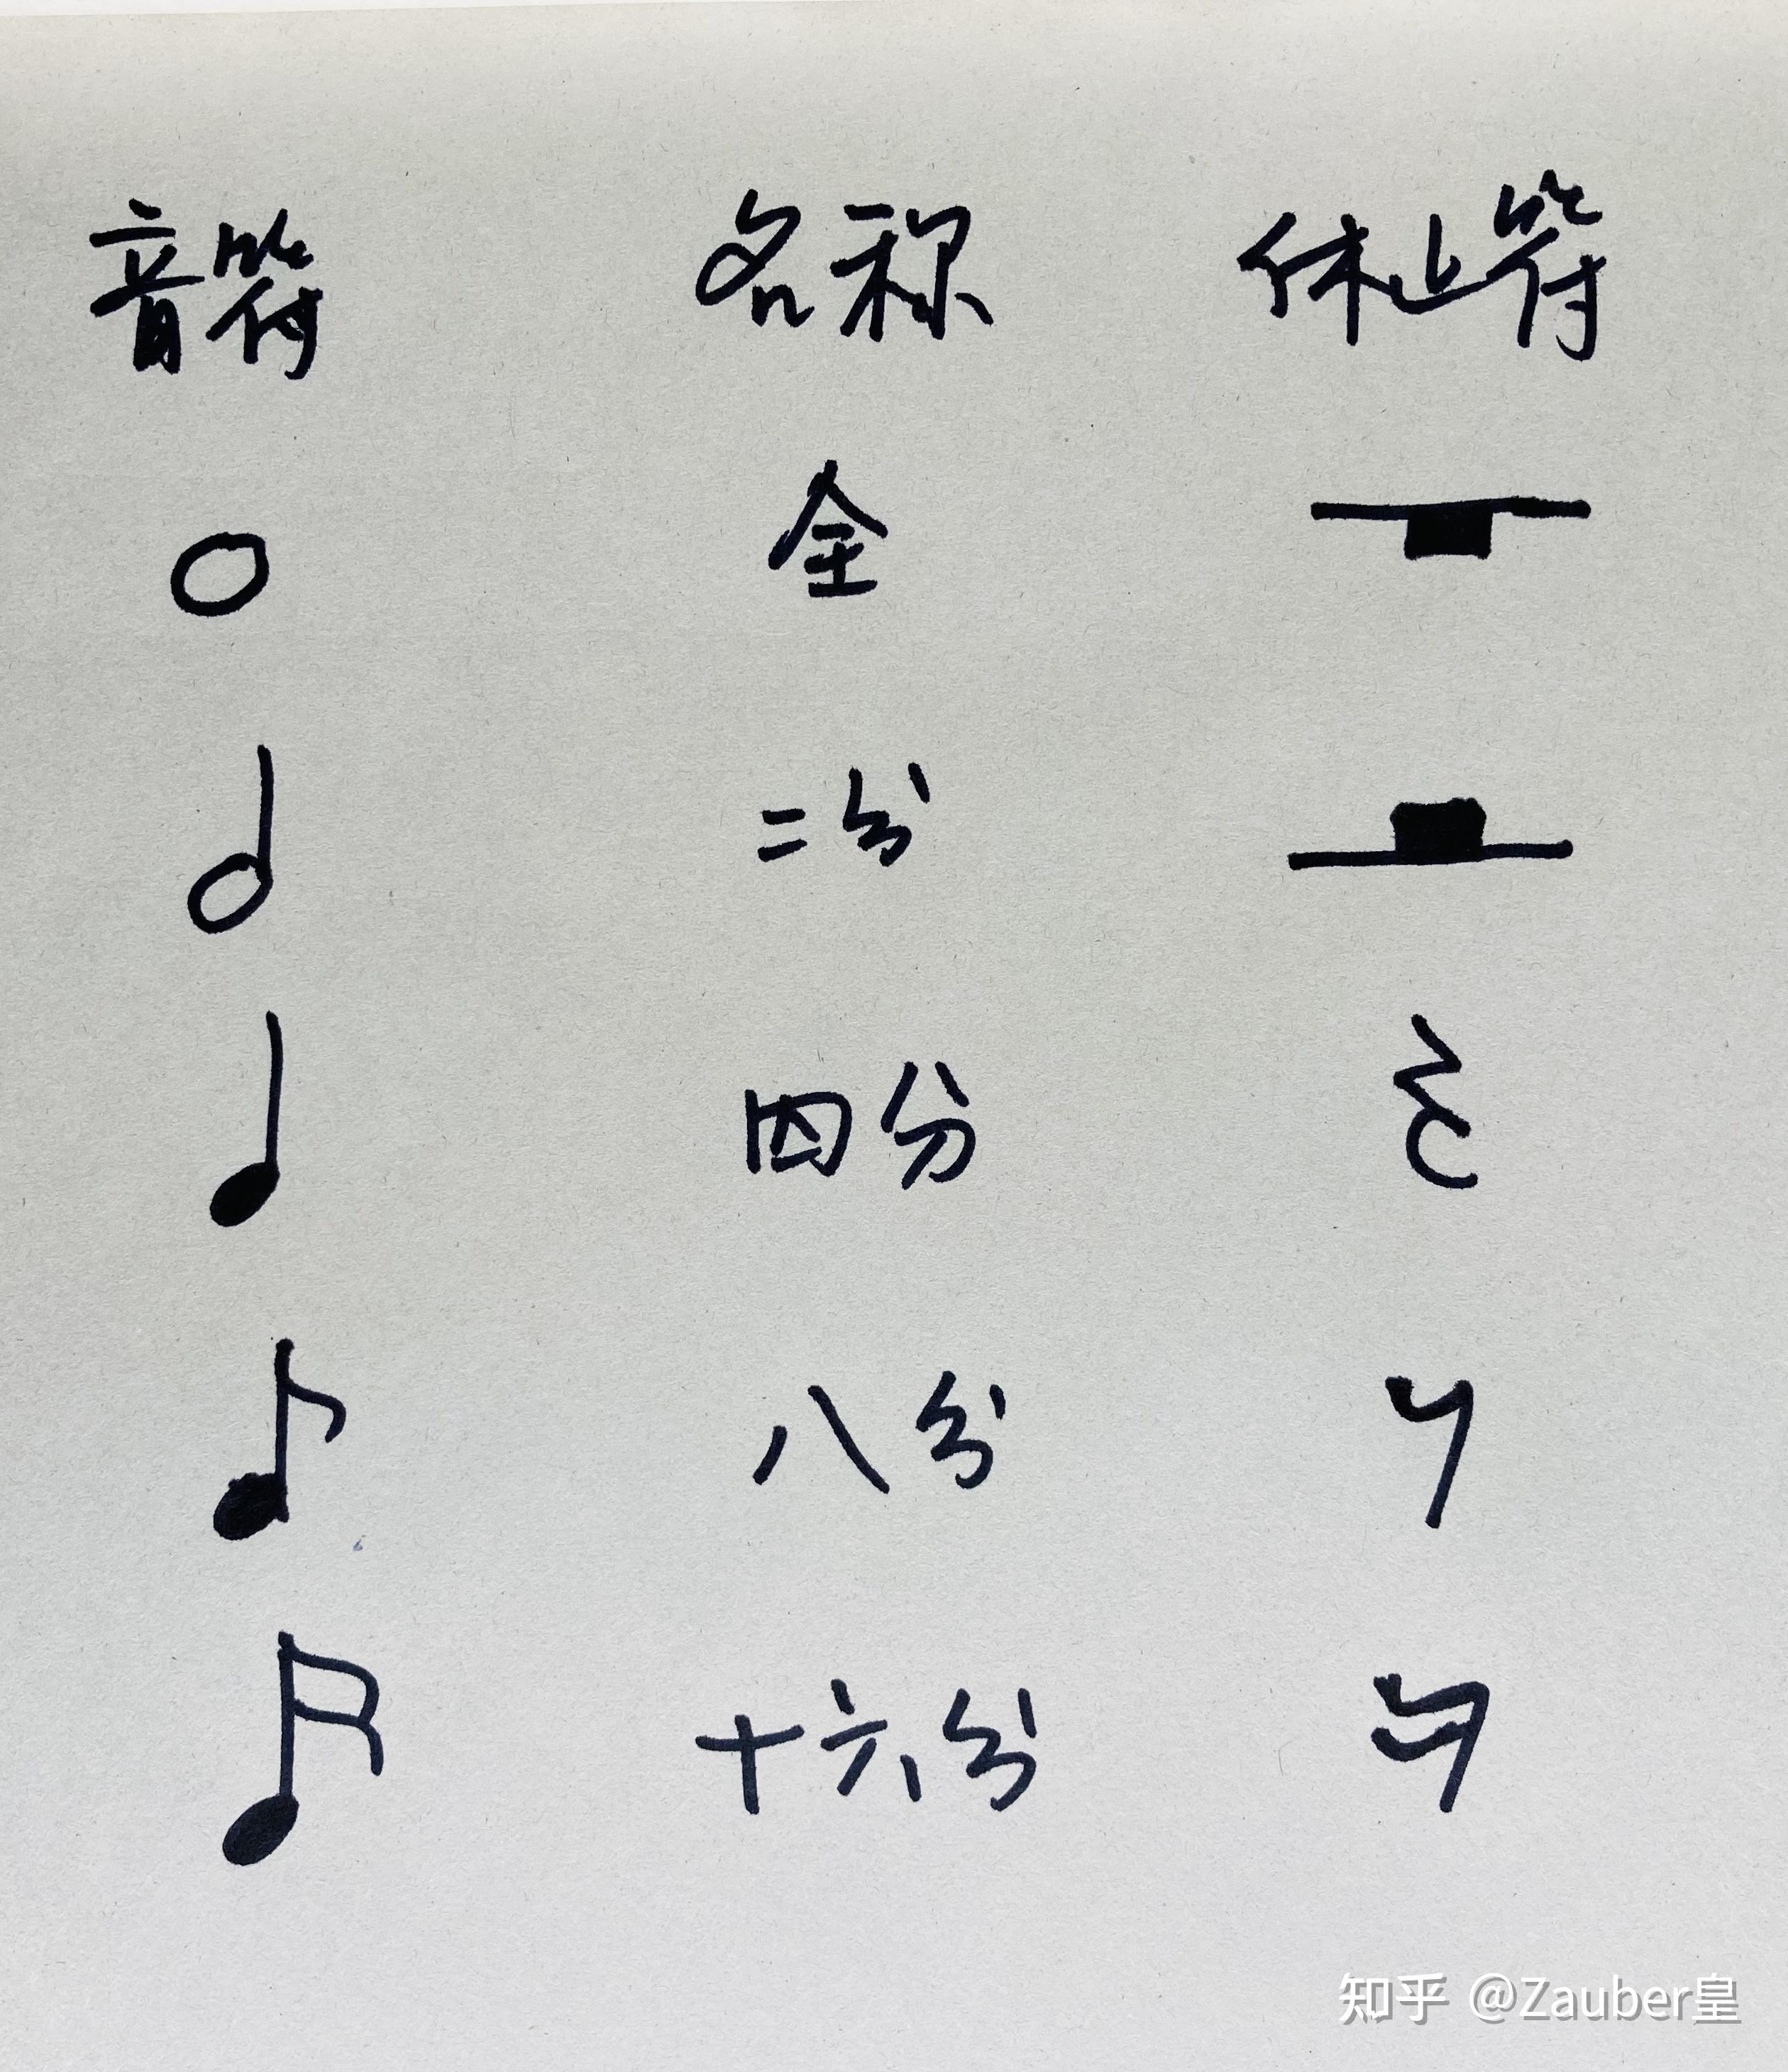 音符 名称 休止符
全
二分
四分
八分
十六分
知乎 @Zauber皇